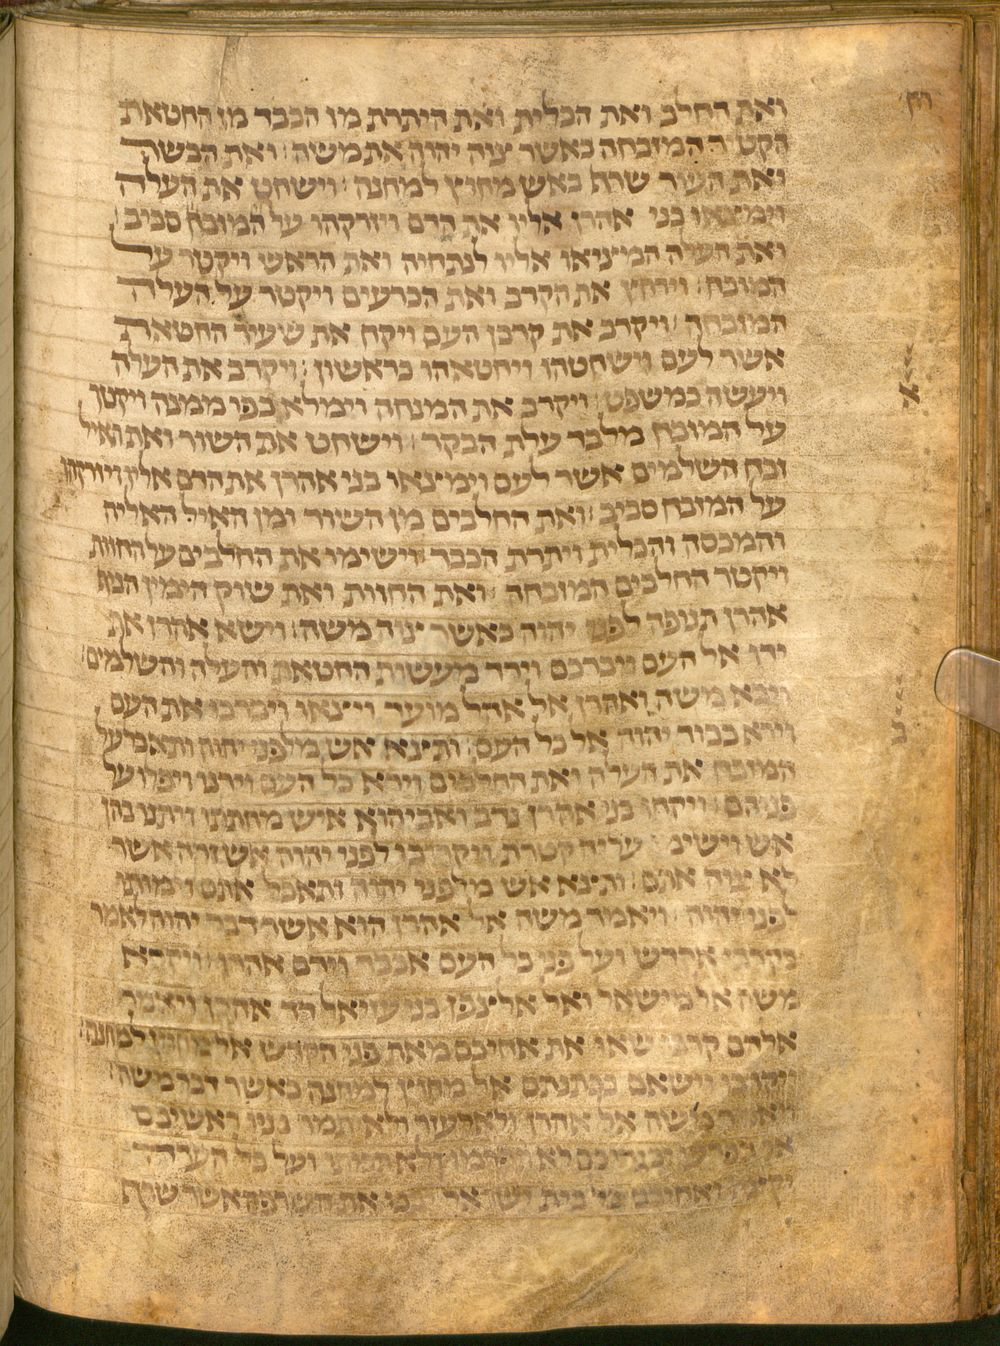 ואת החלב ואת הכלית ואת היתרת מן הכבד מן החטאת
הקטיר המזבחה כאשר צוה יהוה את משה : ואת הבשר
ואת העור שרף באש מחוץ למחנה : וישחט את העלה
וימצאו בני אהרן אליו את הדם ויזרקהו על המזבח סביב :
ואת העלה המציאו אליו לנתחיה ואת הראש ויקטר על
המזבח : וירחץ את הקרב ואת הכרעים ויקטר על העלה
המזבחה : ויקרב את קרבן העם ויקח את שעיר החטאת
אשר לעם וישחטהו ויחטאהו כראשון : ויקרב את העלה
ויעשה כמשפט : ויקרב את המנחה וימלא כפו ממנה ויקטר
על המזבח מלבד עלת הבקר : וישחט את השור ואת האיל
זבח השלמים אשר לעם וימצאו בני אהרן את הדם אליו ויזרקהו
על המזבח סביב : ואת החלבים מן השור ומן האיל האליה
והמכסה והכלית ויתרת הכבד : וישימו את החלבים על החזות
ויקטר החלבים המזבחה : ואת החזות ואת שוק הימין הניף
אהרן תנופה לפני יהוה כאשר צוה משה : וישא אהרן את
ידו אל העם ויברכם וירד מעשות החטאת והעלה והשלמים :
ויבא משה ואהרן אל אהל מועד ויצאו ויברכו את העם
וירא כבוד יהוה אל כל העם : ותצא אש מלפני יהוה ותאכל על
המזבח את העלה ואת החלבים וירא כל העם וירנו ויפלו על
פניהם : ויקחו בני אהרן נדב ואביהוא איש מחתתו ויתנו בהן
אש וישימו עליה קטרת ויקרבו לפני יהוה אש זרה אשר
לא צוה אתם : ותצא אש מלפני יהוה ותאכל אתם וימתו
לפני יהוה : ויאמר משה אל אהרן הוא אשר דבר יהוה לאמר
בקרבי אקדש ועל פני כל העם אכבד וידם אהרן : ויקרא
משה אל מישאל ואל אלצפן בני עזיאל דד אהרן ויאמר
אלהם קרבו שאו את אחיכם מאת פני הקדש אל מחוץ למחנה :
ויקרבו וישאם בכתנתם אל מחוץ למחנה כאשר דבר משה :
ויאמר משה אל אהרן ולאלעזר ולאיתמר בניו ראשיכם
אל תפרעו ובגדיכם לא תפרמו ולא תמתו ועל כל העדה
יקצף ואחיכם כל בית ישראל יבכו את השרפה אשר שרף